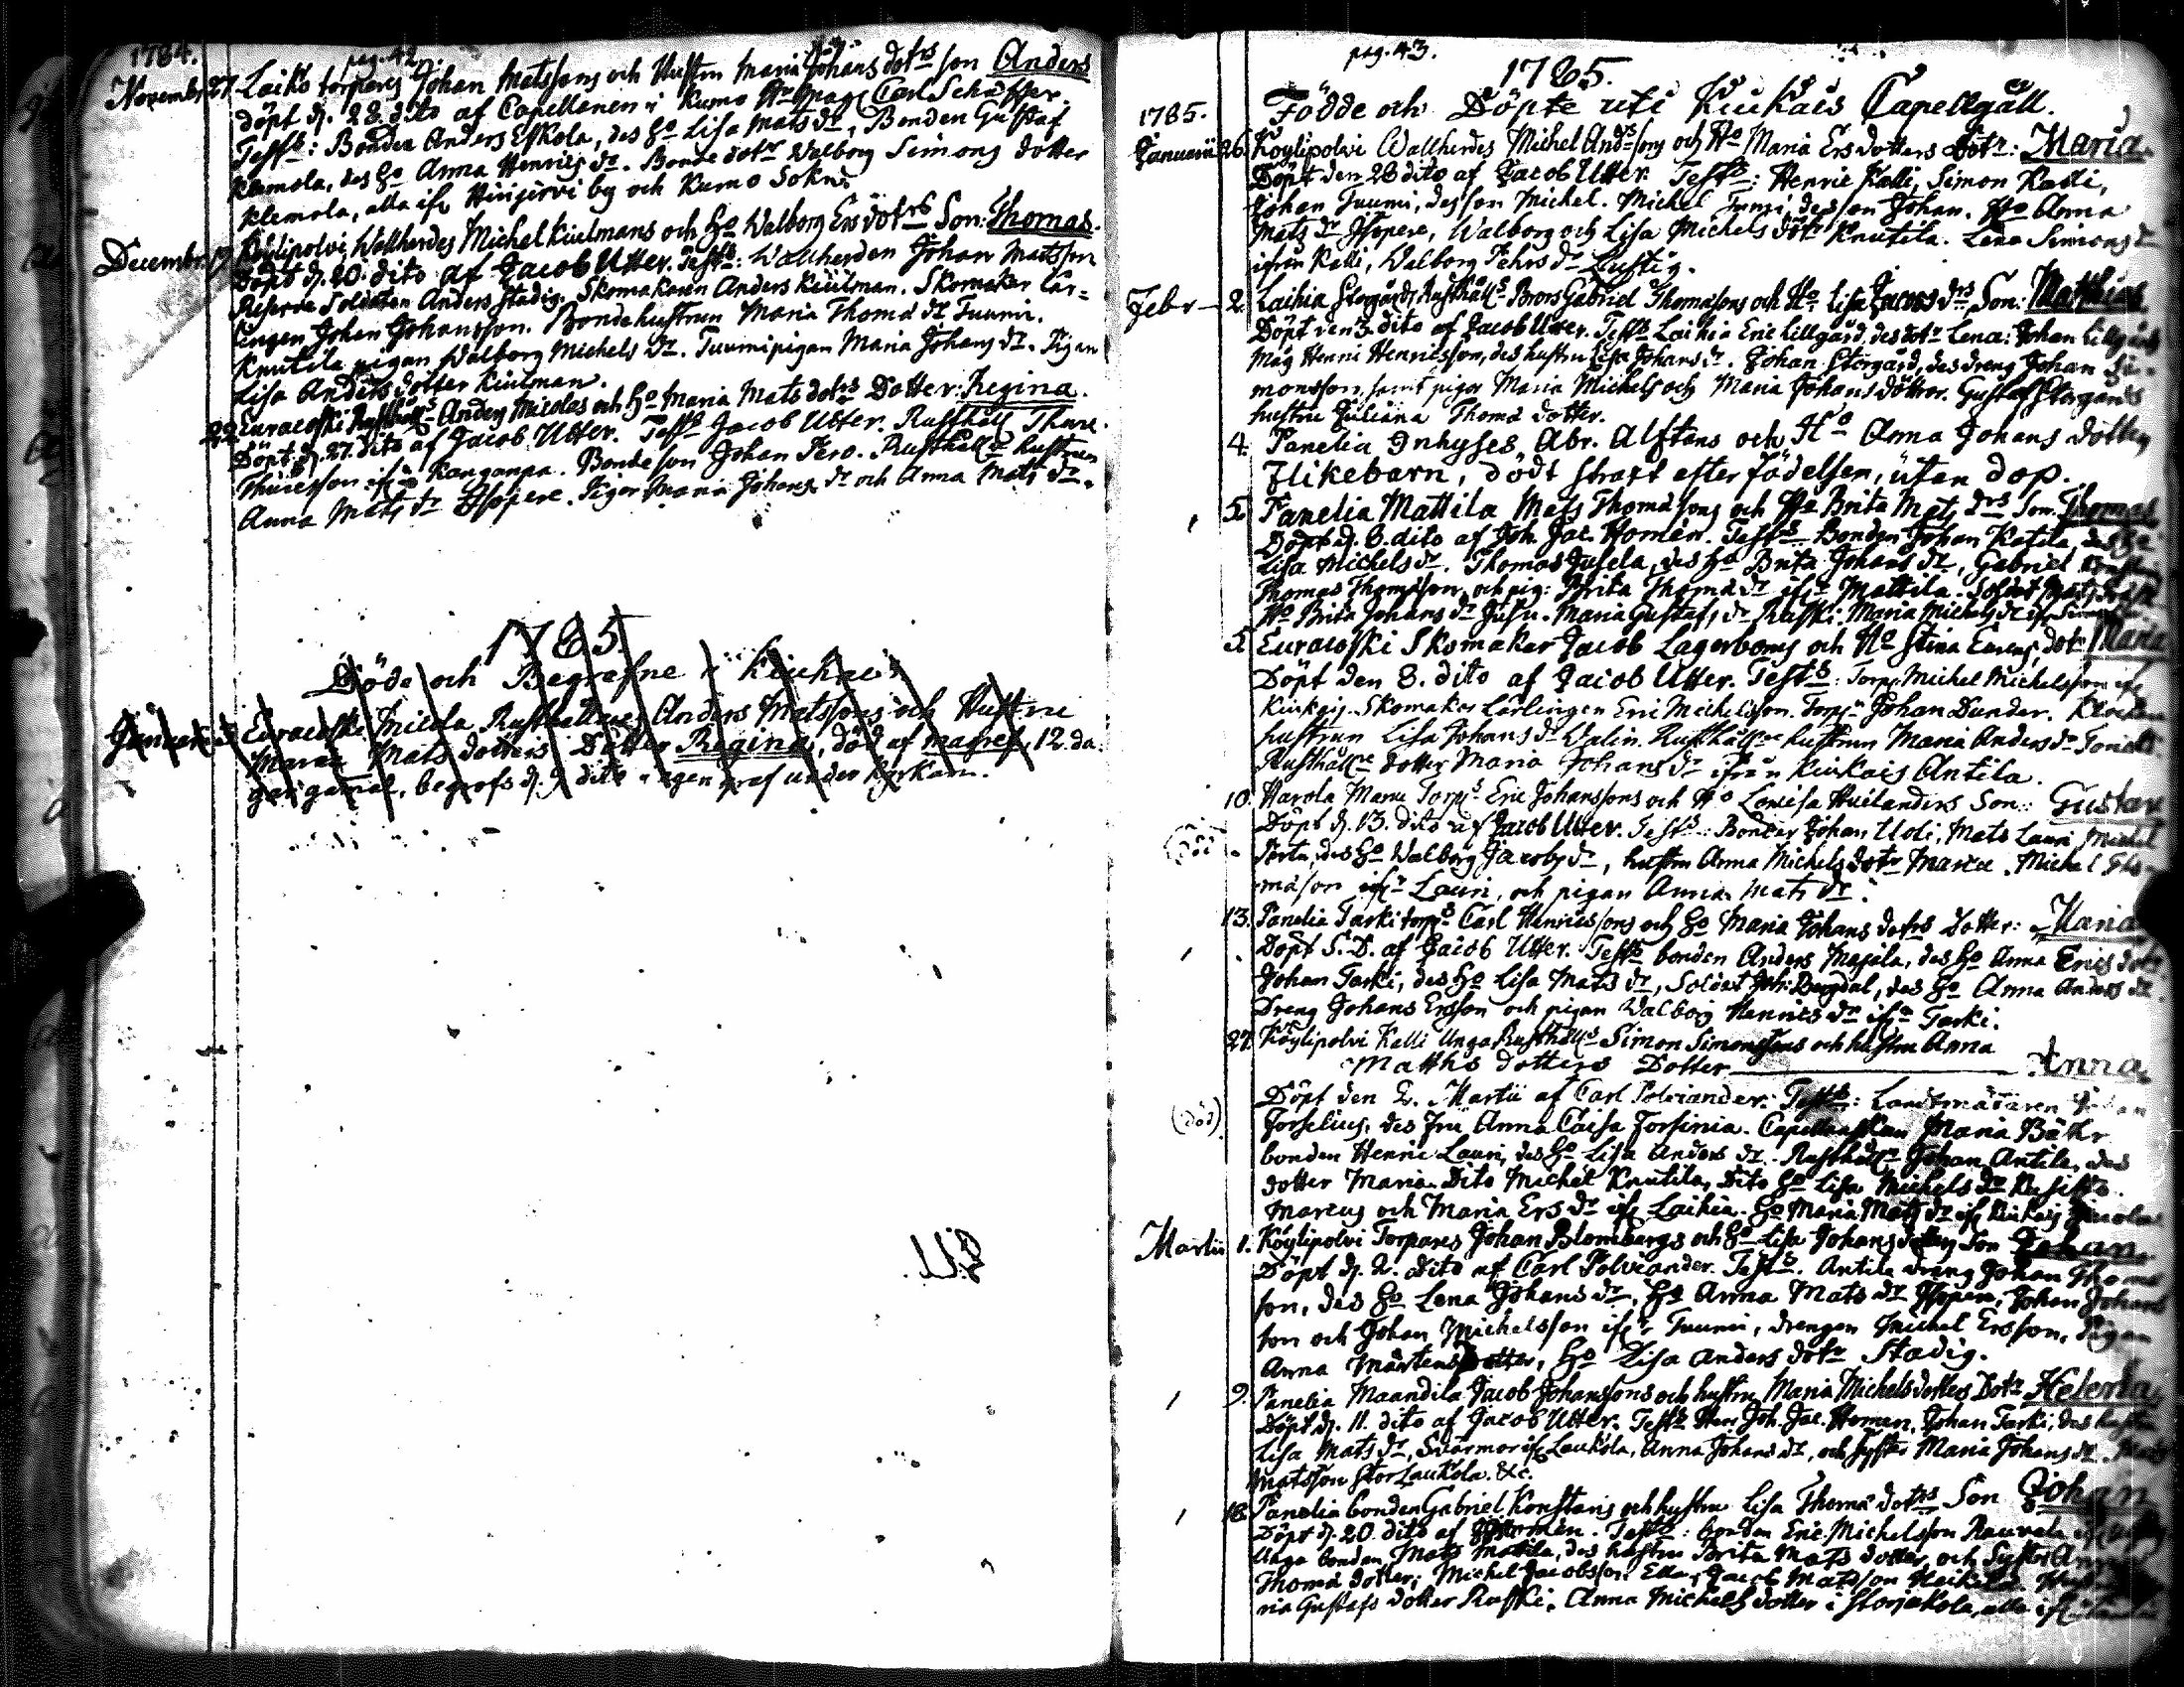 1784.
pag. 42.
Novembr. 27. Laiko torpares Johan Matssons och Hustru Maria Johans dotrs son Anders
döpt d. 28. dito af Capellanen i Kumo Hr Mag. Carl Schäffer.
Tests: Bonden Anders Eskola, des Ho Lisa Mats dr, Bonden Gustaf
Klemola, des Ho Anna Henrics dr. Bonde dotr Walborg Simons dotter
Klemola, alla ifr Hinjervi by och Kumo Sokn.
Decembr. 19. Köylipolvi Wallherdes Michel Kiulmans och Ho Walborg Ers dotrs Son: Thomas.
Döpt d. 20. dito af Jacob Utter. Tests: Wallherden Johan Matsson
Reserve Soldaten Anders Stadig. Skomakaren Anders Kiulman. Skomaker Lär=
lingen Johan Johansson. Bondehustrun Maria Thoma dr Tuumi.
Knutila pigan Walborg Michels dr. Tuumi pigan Maria Johans dr. Pigan
Lisa Anders dotter Kiulman.
22. Euracoski Rusthålls Anders Micolas och Ho Maria Mats dotrs Dotter: Regina.
Döpt d. 27. dito af Jacob Utter. Tests Jacob Utter. Rusthåll Thure
Thuresson ifrån Kanganpä. Bonde son Johan Tero. Rusthållre hustrun
Anna Mats dr Isopere. Pigor Maria Johans dr och Anna Mats dr.
1785
Döde och Begrafne i Kiukais
Januarii Euracoski Micola Rusthållares Anders Matssons och Hustru
Maria Mats dotters Dotter Regina, död af masref, 12. da:
gar gamal, begrofs d. 9 dito i egen graf under kyrkan.
pag. 43.
1785.
Födde och Döpte uti Kiukais Capellgäll.
1785.
Januarii 26. Köylipolvi Wallherdes Michel Andrssons och Ho Maria Ers dotters dotr: Maria.
Döpt den 28 dito af Jacob Utter. Tests: Henric Kalli, Simon Kalli,
Johan Tuumi, des son Michel. Michel Tumi, des son Johan. Ho Anna
Mats dr Isopere, Walborg och Lisa Michels dötr Knutila. Lena Simons dr
ifrån Kalli, Walborg Pehrs dr Lustig.
Febr 2. Laihia Storgårds Rusthålls Brors Gabriel Thomassons och Ho Lisa Jacobs drs Son: Mathias
Döpt den 3. dito af Jacob Utter. Tests Laihia Eric Lillgård, des dotr Lena: Johan Lillgårds
Mag Henric Henricsson, des hustru Lisa Johans dr. Johan Storgård, des dreng Johan Si=
monsson samt pigor Maria Michels och Maria Johans döttrar. Gustaf Storgårds
hustru Juliana Thoma dotter.
4. Panelia Inhyses Abr. Alftans och Ho Anna Johans dotters
Flikebarn, dödt straxt efter födelsen, utan dop.
5. Panelia Mattila Mats Thomassons och Ho Brita Mats drs Son: Thomas
Döpt d. 8. dito af Joh. Jac. Homén. Tests Bonden Johan Katila, des Ho
Lisa Michels dr. Thomas Jusela, des Ho Brita Johans dr, Gabriel
Thomas Thomasson, och pig: Brita Thoma dr ifr Mattila. Soldat Mats
Ho Brita Johans dr Jusu. Maria Gustafs dr Ruski. Maria Michels dr ifr
5. Euracoski Skomaker Jacob Lagerboms och Ho Stina dotr Maria
Döpt den 8. dito af Jacob Utter. Tests: Torpr Michel Michelsson ifr
Kiukais. Skomaker Lärlingen Eric Michelsson. Torpr Johan Dunder. Klockar
hustrun Lisa Johans dr Walin. Rusthållre hustrun Maria Anders dr
Rusthållre dotter Maria Johans dr ifrån Kiukais Antila.
10. Harola Marri Torprs Eric Johanssons och Ho Lovisa Huilanders Son: Gustav
Döpt d. 13. dito af Jacob Utter. Tests: Bonder Johan Uoti, Mats Lauri, Michel
Perta, des Ho Walborg Jacobs dr, hustru Anna Michels dotr Marri. Michel Tho=
masson ifr Lauri, och pigan Anna Mats dr.
13. Panelia Tarki torprs Carl Henricssons och Ho Maria Johans dotrs Dotter: Maria
Döpt S. D. af Jacob Utter. Tests bonden Anders Majala, des Ho Anna Erics dotr
Johan Tarki, des Ho Lisa Mats dr, Soldat Joh: Bergdal, des Ho Anna Anders dr
Dreng Johans Ersson och pigan Walborg Henrics dr ifrn Tarki.
27. Köylipolvi Kalli Unga Rusthålls Simon Simonssons och hustru Anna
Matths dotters Dotter Anna
(död). Döpt den 2. Martii af Carl Polviander. Tests: Landtmätaren Johan
Forselius, des Fru Anna Caisa Forsinia. Capellanskan Maria Bäkr
bonden Henric Lauri, des Ho Lisa Anders dr. Rusthållre Johan Antila, des
dotter Maria. Dito Michel Knutila, Dito Ho Lisa Michels dr
Marcus och Maria Ers dr ifr Laihia. Ho Maria Mats dr ifr Kiukais Micola
Martii 1. Köylipolvi Torpares Johan Blombergs och Ho Lisa Johans dotters Son Johan.
Döpt d. 2. dito af Carl Polviander. Tests. Antila dreng Johan Thomas
son, des Ho Lena Johans dr, Ho Anna Mats dr Isopere, Johan Johans
son och Johan Michelsson ifrn Tuumi, drengen Michel Ersson, Pigan
Anna Mårtens dotter, Ho Lisa Anders dotr Stadig.
9. Panelia Maandila Jacob Johanssons och hustru Maria Michels dotters Dotr Helena
Döpt d. 11. dito af Jacob Utter. Tests Herr Joh. Jac. Homen. Johan Tarki, des hustru
Lisa Mats dr, Svärmor ifr Laukola, Anna Johans dr, och Syster Maria Johans dr. Mats
Matsson Stor Laukola. &c.
18. Panelia bonden Gabriel Konstaris och hustru Lisa Thoma dotrs Son Johan
Döpt d. 20. dito af Homén. Tests: bonden Eric Michelsson Rauvala
Unga bonden Mats Matila, des hustru Brita Mats dotter, och Syster Anna
Thoma dotter, Michel Jacobsson Ella, Jacob Matsson Heikilä.
ria Gustafs dotter Ruski. Anna Michels dotter i Storjakola, alla ifr